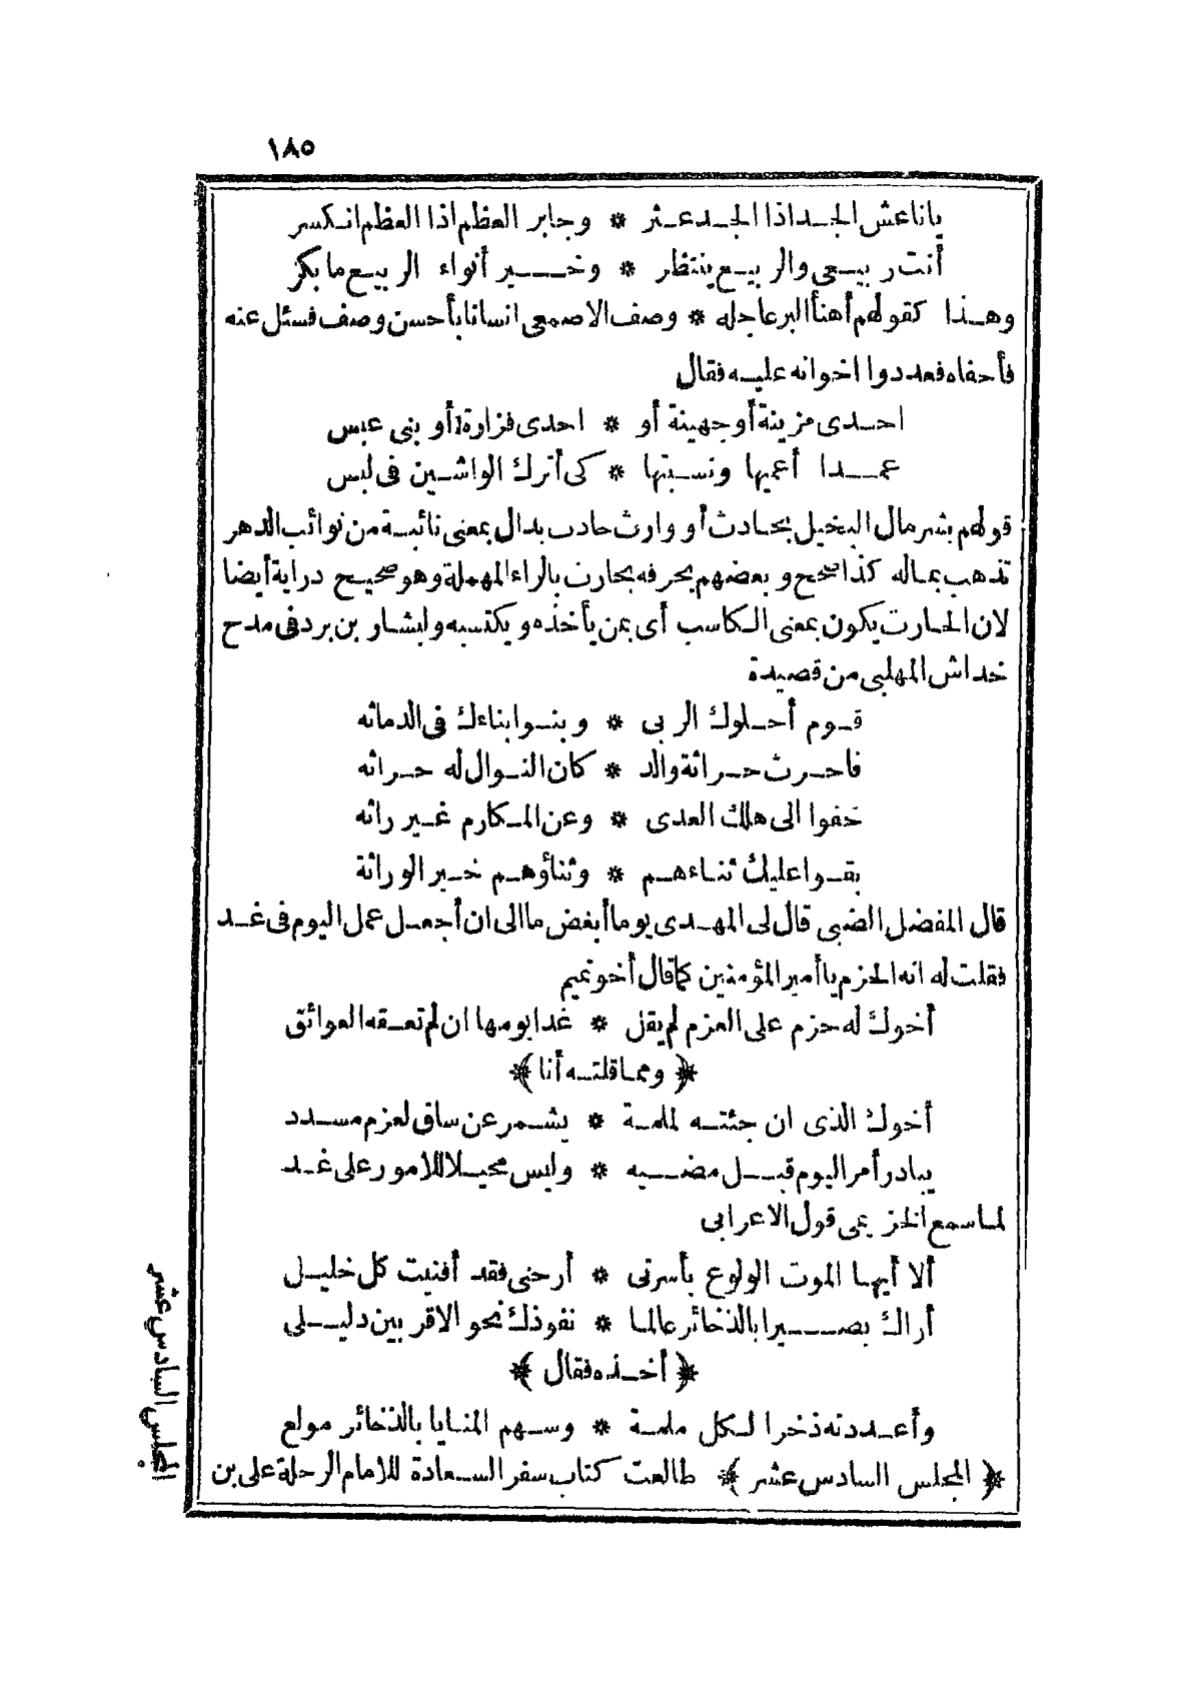 ١٨٥
ياناعش الجد اذا الجد عثر * وجابر العظم اذا العظم انكسر
أنت ربيعي والربيع ينتظر * وخير أنواء الربيع ما بكر
وهذا كقولهم أهنأ البر عاجله * وصف الاصمعى انسانا بأحسن وصف فسئل عنه
فأحفاه فعددوا اخوانه عليه فقال
احدى مزينة أو جهينة أو * احدى فزارة أو بنى عبس
عمدا أعميها ونسبتها * كى أترك الواشين فى لبس
قولهم بشر مال البخيل بحادث أو وارث حادب بدال بمعنى نائبة من نوائب الدهر
تذهب بماله كذا صحح وبعضهم يحرفه بحارث بالراء المهملة وهو صحيح دراية أيضا
لان الحارث يكون بمعنى الكاسب أى بمن يأخذه ويكتسبه ولبشار بن برد فى مدح
خداش المهلبى من قصيدة
قوم أحلوك الربى * وبنوا بناءك فى الدماثه
فاحرث حراثة والد * كان النوال له حراثه
خفوا الى هلك العدى * وعن المكارم غير راثه
بقوا عليك ثناءهم * وثناؤهم خير الوراثة
قال المفضل الضبى قال لى المهدى يوما أبغض ما الى ان أجعل عمل اليوم فى غد
فقلت له انه الحزم يا أمير المؤمنين كما قال أخو تميم
أخوك له حزم على العزم لم يقل * غدا يومها ان لم تعقه العوائق
﴿ ومما قلته أنا ﴾
أخوك الذى ان جئته لملمة * يشمر عن ساق لعزم مسدد
يبادر أمر اليوم قبل مضيه * وليس محيلا للامور على غد
لما سمع الخزيمى قول الاعرابى
ألا أيها الموت الولوع بأسرتى * أرحنى فقد أفنيت كل خليل
أراك بصيرا بالذخائر عالما * نفوذك نحو الاقربين دليلى
﴿ أخذه فقال ﴾
وأعددته ذخرا لكل ملمة * وسهم المنايا بالذخائر مولع
﴿ المجلس السادس عشر ﴾ * طالعت كتاب سفر السعادة للامام الرحلة على بن
المجلس السادس عشر